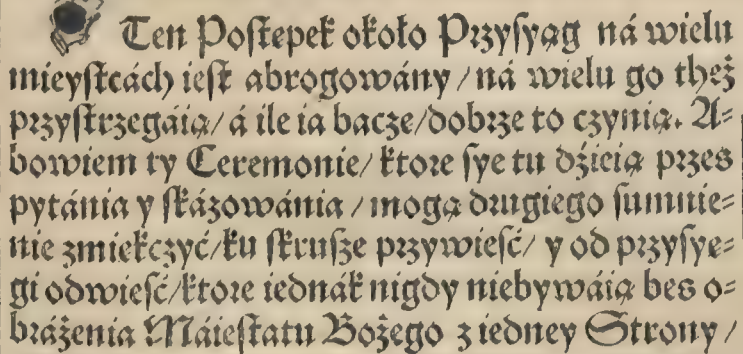 Ten Poſtepek około Przyſyąg ná wielu
mieyſtcách ieſt abrogowány / ná wielu go theż
przyſtrzegáią / á ile ia bacze / dobrze to czynią. A⸗
bowiem ty Ceremonie / ktore ſye tu dźieią przes
pytánia y ſkázowánia / mogą drugiego ſumnie⸗
nie zmiekczyć / ku ſkruſze przywieſć / y od przyſye⸗
gi odwieſć / ktore iednák nigdy niebywáią bes o⸗
bráżenia Máieſtatu Bożego z iedney Strony /